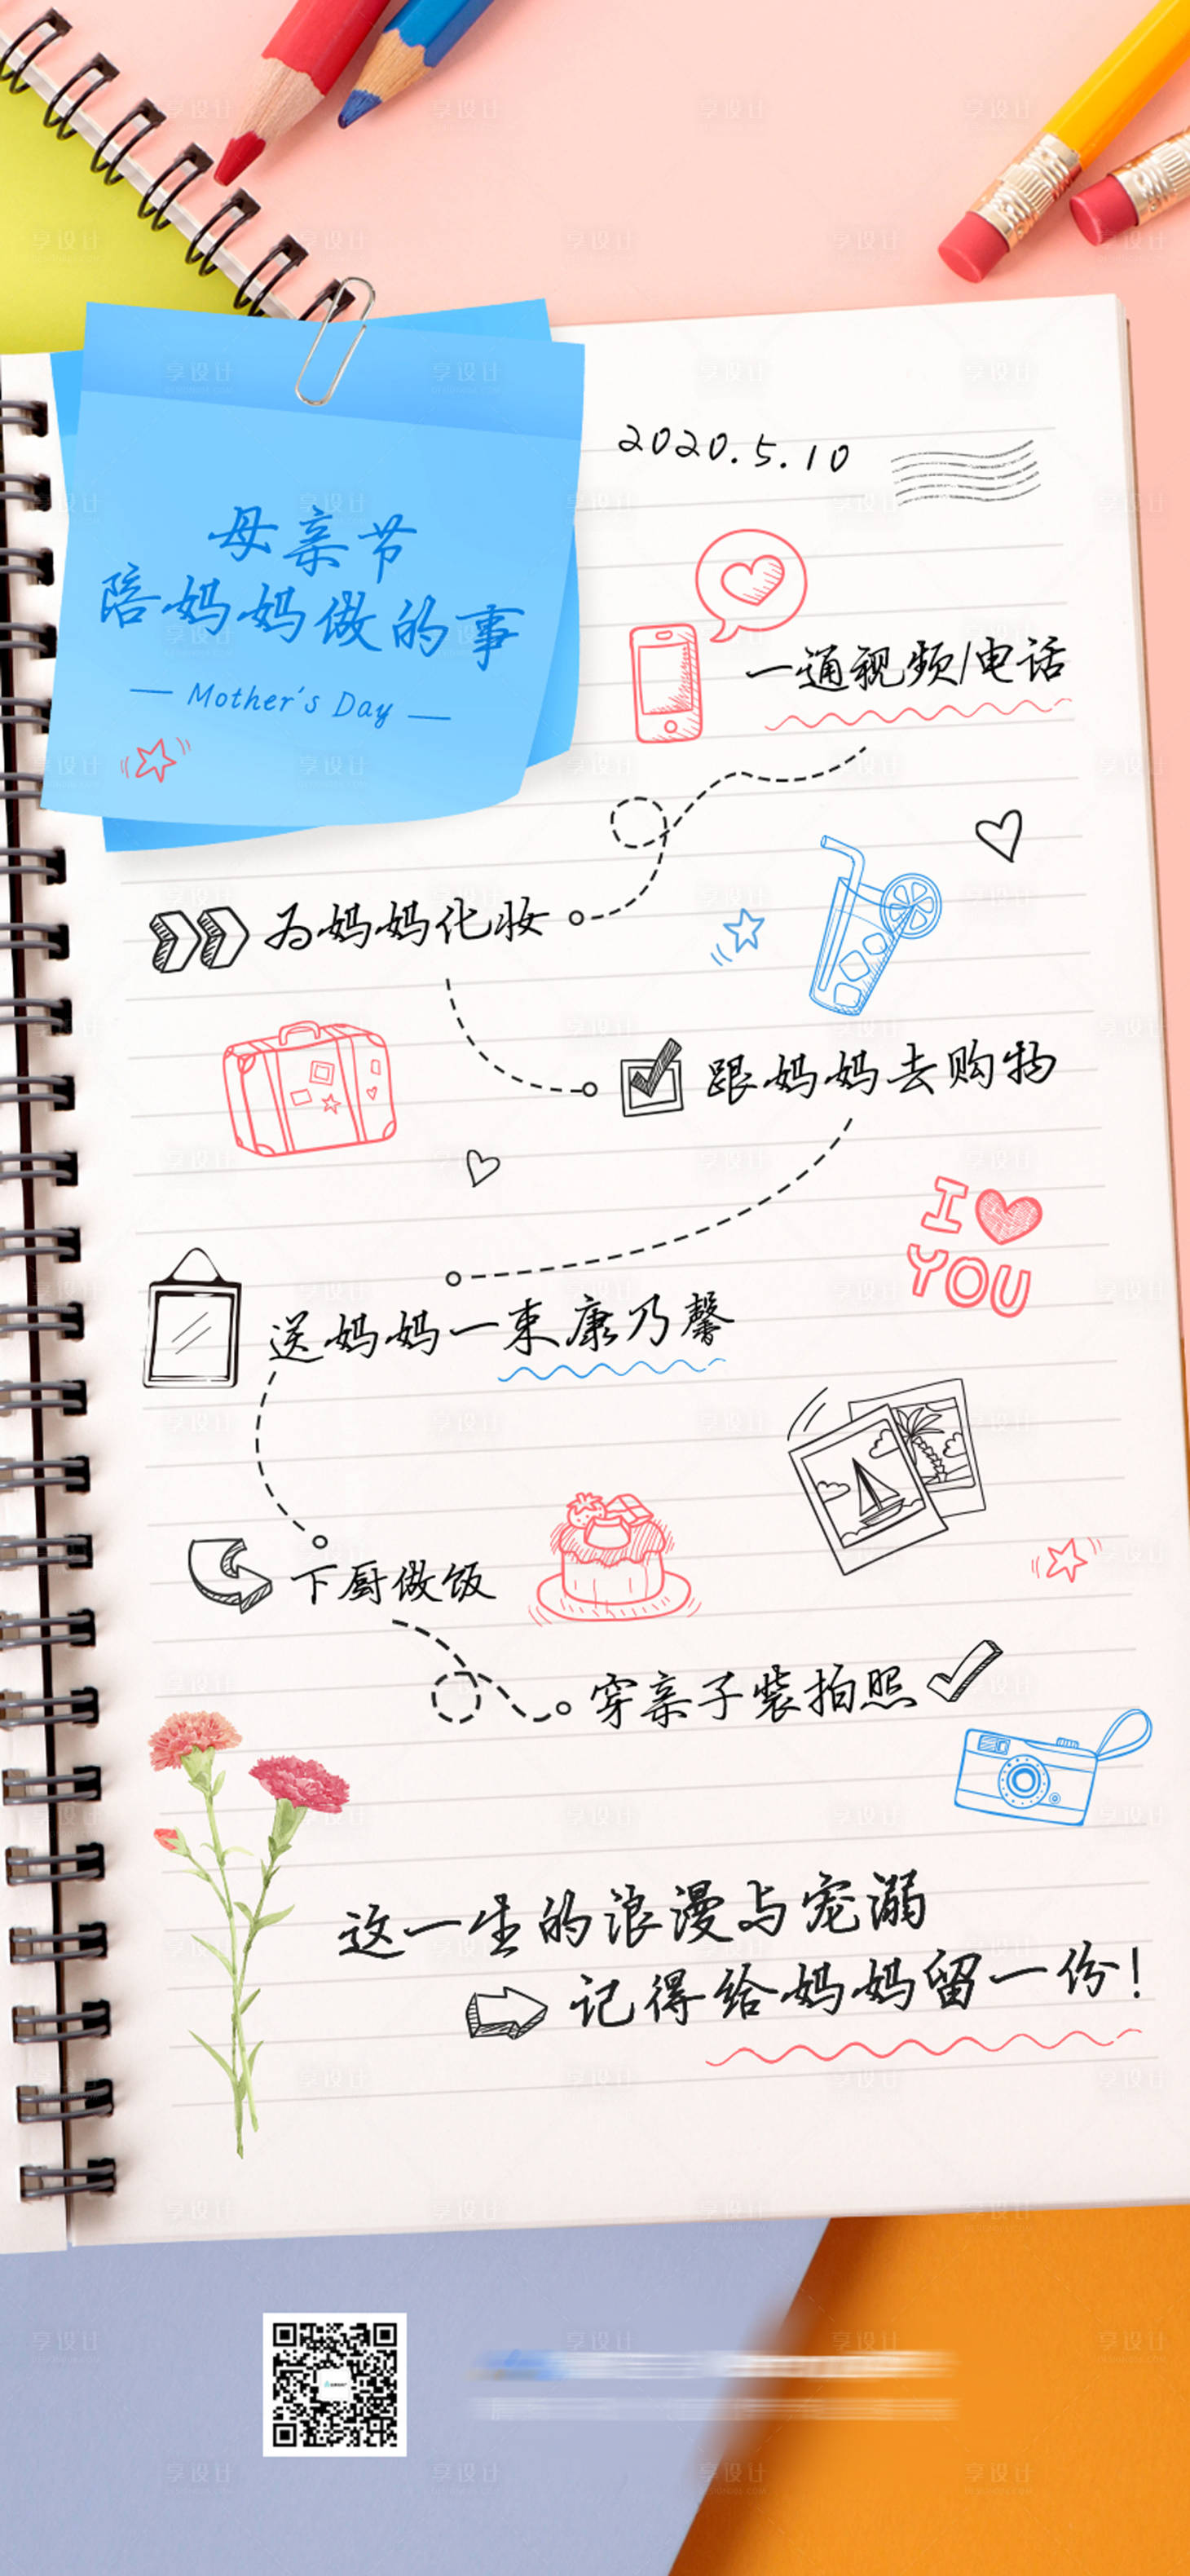 母亲节
陪妈妈做的事
— Mother's Day —
2020.5.10
一通视频/电话
为妈妈化妆
跟妈妈去购物
I YOU
送妈妈一束康乃馨
下厨做饭
穿亲子装拍照
这一生的浪漫与宠溺
记得给妈妈留一份！
享设计